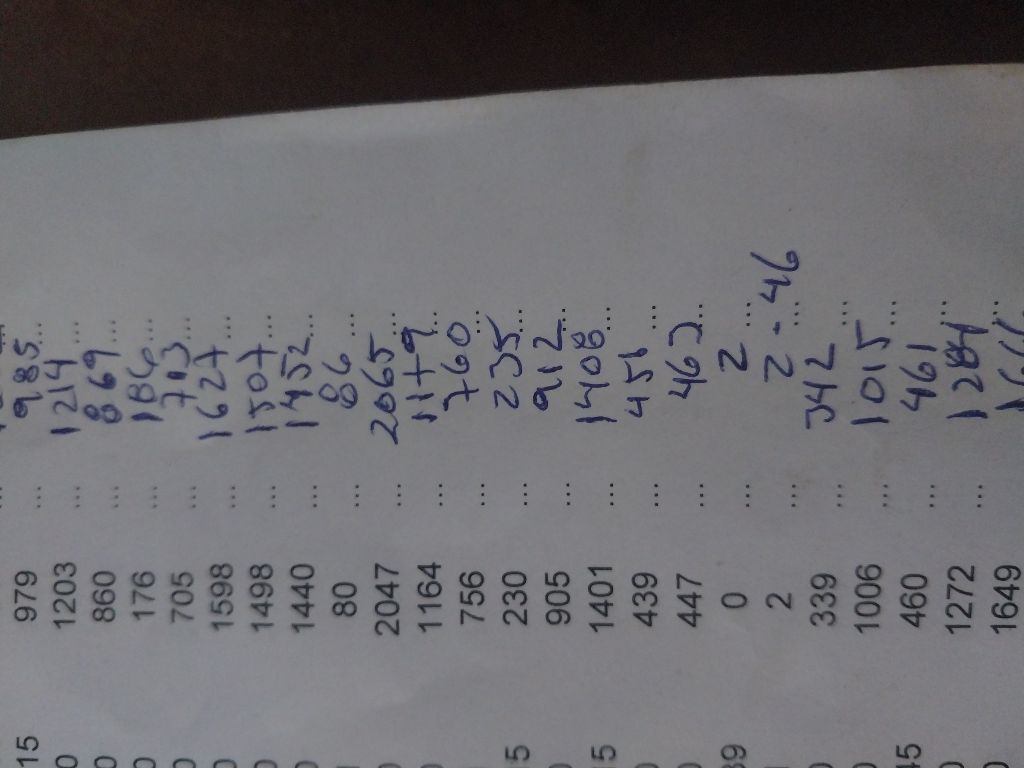 15 979 ... 985...
0 1203 ... 1214 ...
0 860 ... 869...
0 176 ... 186...
0 705 ... 713...
0 1598 ... 1627...
0 1498 ... 1507...
0 1440 ... 1452...
80 ... 86 ...
0 2047 ... 2065...
0 1164 ... 1179...
0 756 ... 760...
15 230 ... 235...
0 905 ... 912...
15 1401 ... 1408...
0 439 ... 451 ...
0 447 ... 463...
39 0 ... 2 ...
2 ... 2-46
0 339 ... 342 ...
0 1006 ... 1015...
45 460 ... 461 ...
0 1272 ... 1284...
0 1649